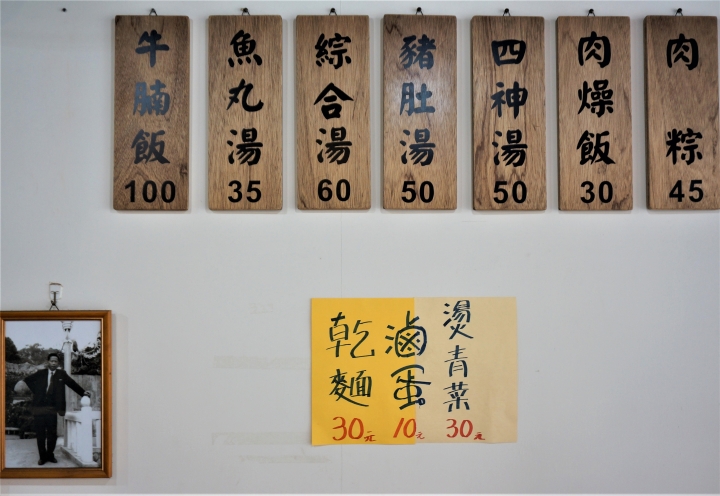 肉粽
45
肉燥飯
30
四神湯
50
豬肚湯
50
綜合湯
60
魚丸湯
35
牛腩飯
100
燙青菜
30元
滷蛋
10元
乾麵
30元